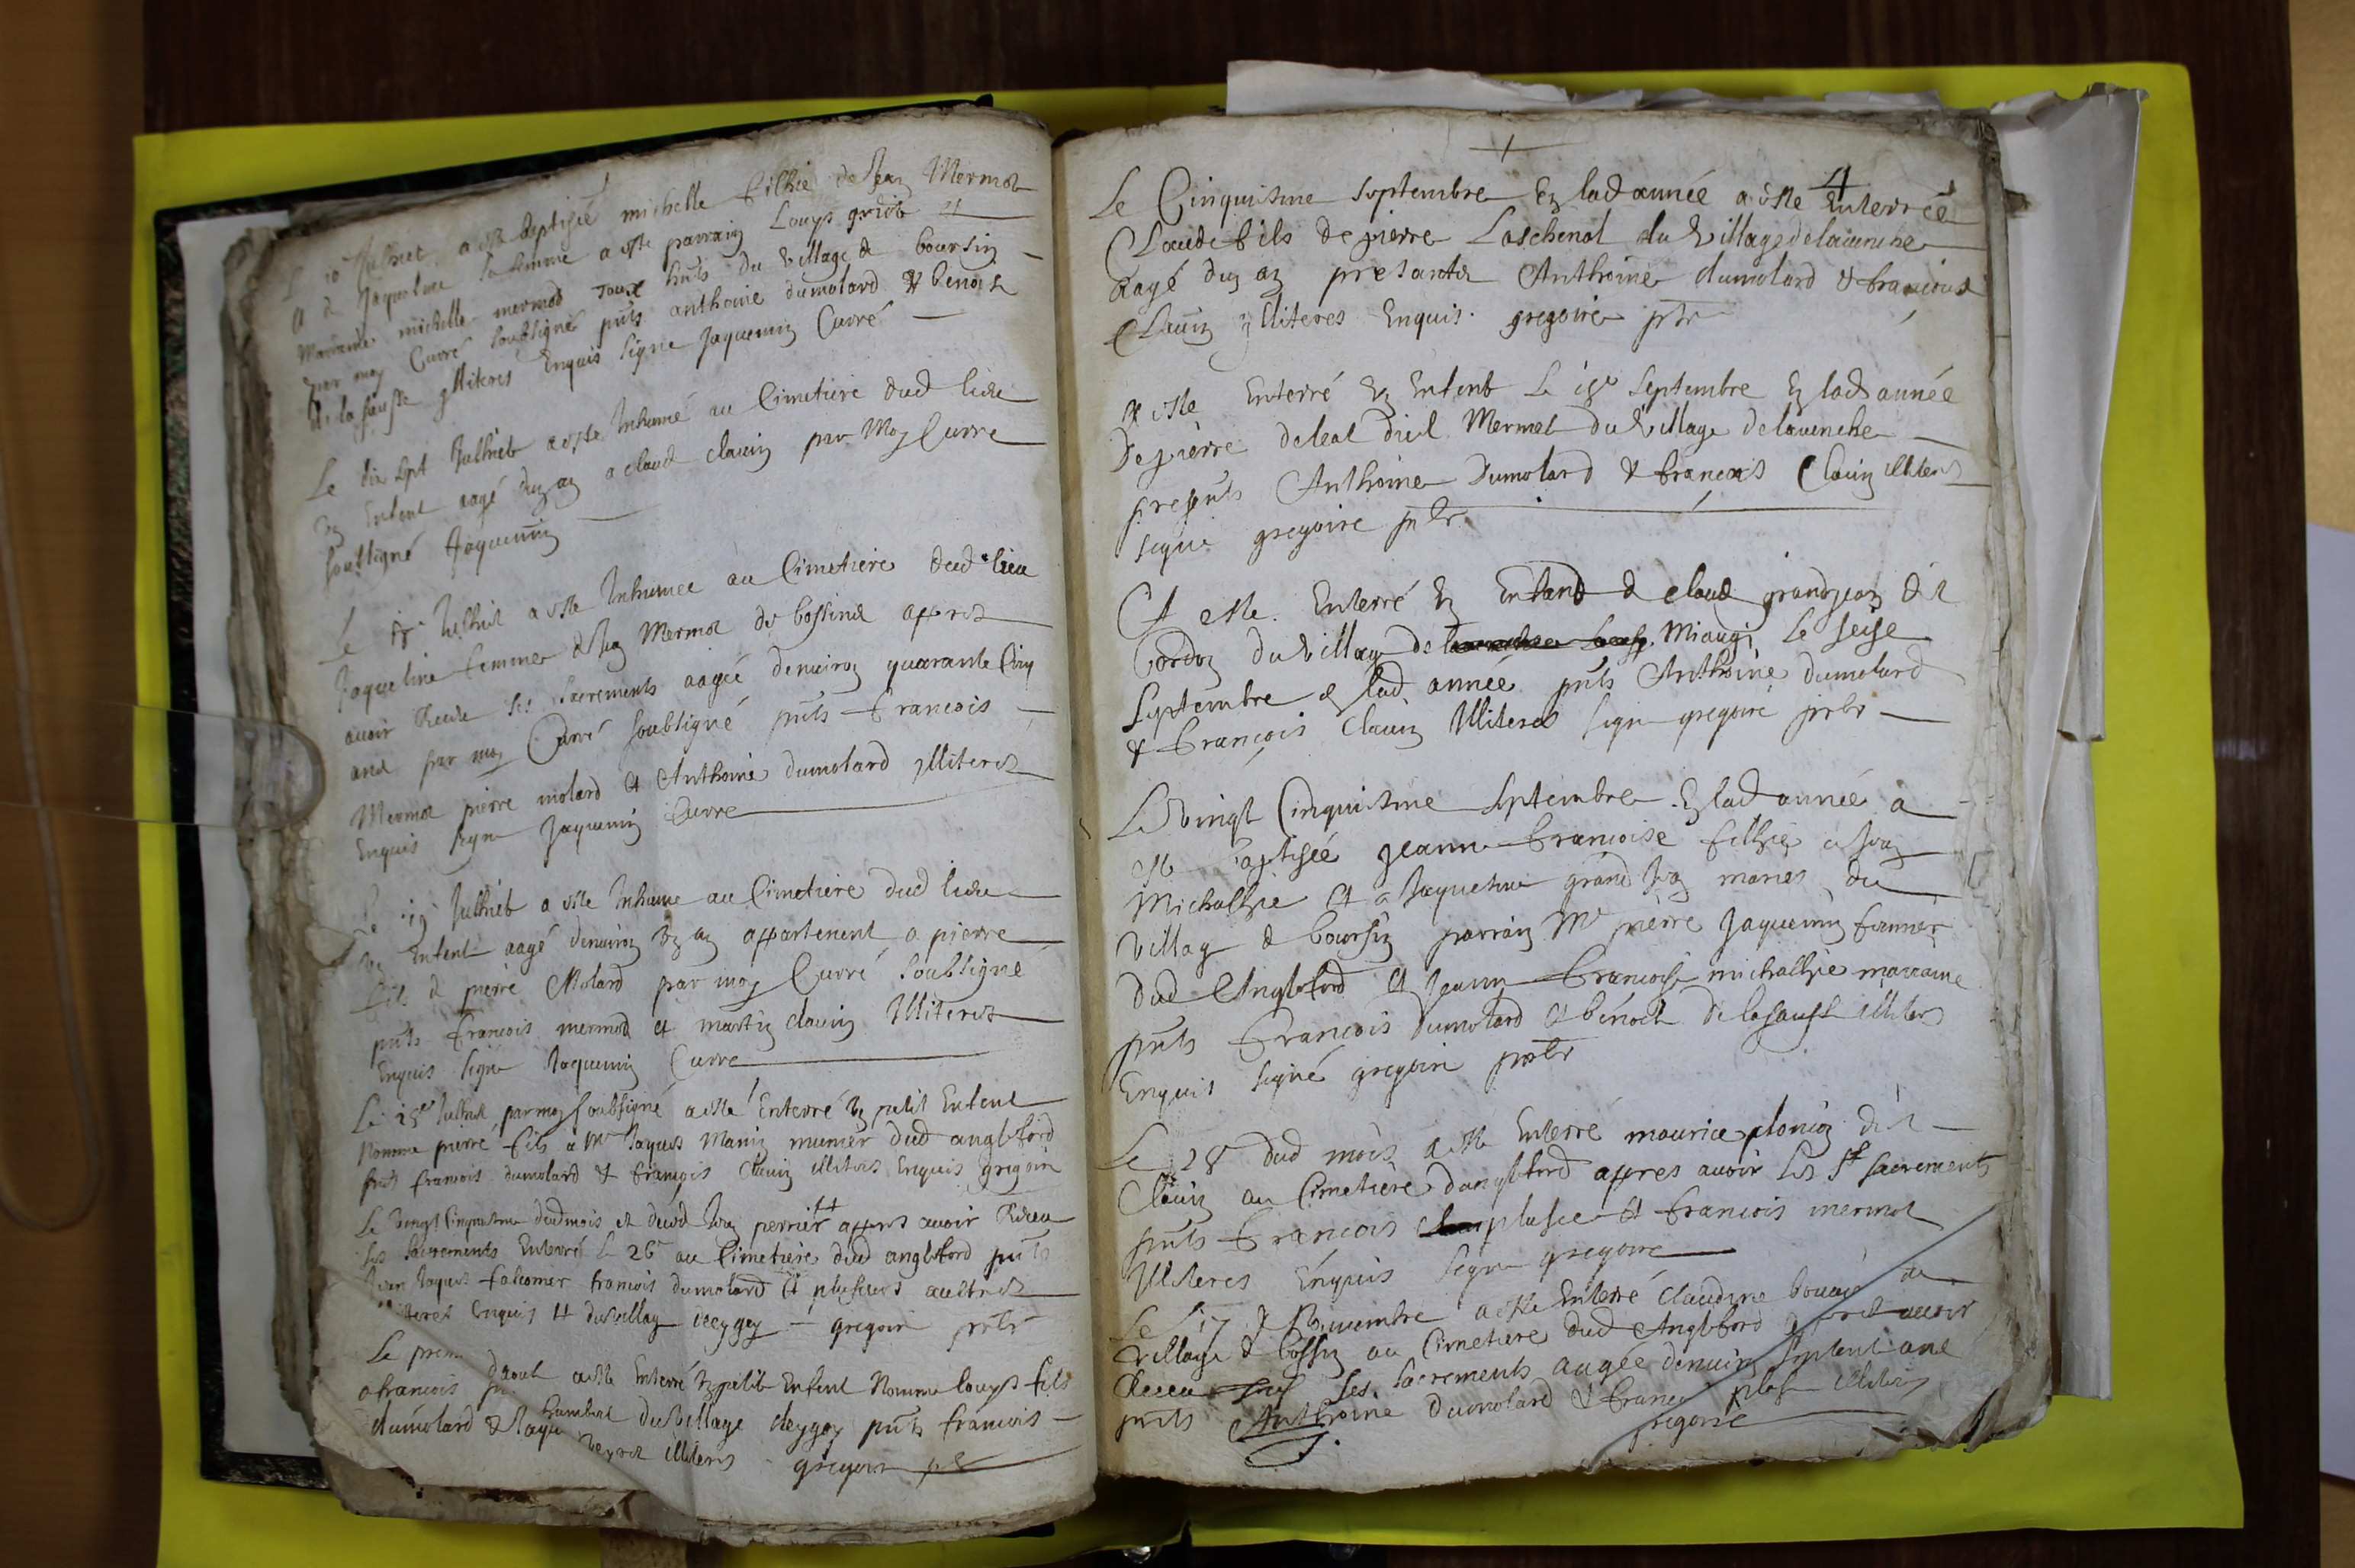 Le 10 Julhiet a este baptisée michelle filhie de Jean Mermot
& de Jaquelme sa femme a este parrain Louys
Marraine michelle mermod tous du village de boursin
par moy Curré soubsigné pnts anthoine dumolard & benoist
de la sauste ylliteres Enquis signe Jaquemin Curré
Le dix sept Julhiet a este Inhumé au Cimetiere dud lieu
un Enfent aagé dun an a claud clavin par Moy Curre
soubsigné Jaquemin
Le Julhiet a este Inhumee au Cimetiere dud lieu
Jaqueline femme de Jean Mermot de bossine apres
avoir Receu ses sacrements aagée denviron quarante Cinq
ans par moy Curré soubsigné pnts francois
Mermot pierre molard et Anthoine dumolard ylliteres
Enquis signe Jaquemin Curre
Le 19 Julhiet a este Inhume au Cimetiere dud lieu
un Enfent aagé denviron un an appartenent a pierre
fils de pierre Molard par moy Curré soubsigné
pnts francois mermod et martin clavin Illiteres
Enquis signe Jaquemin Curre
Le 25e Julhiet par moy soubsigné a esté Enterré un petit Enfent
Nomme pierre fils a Mr Jaques Manin munier dud angleford
pnts francois dumolard & françois Clavin illiteres Enquis gregoire
Le vingt Cinquiesme dud mois et decede Jean perrier apres avoir Receu
ses sacrements Enterré le 26e au Cimetiere dud angleford pnts
Jean Jaques falcomer francois dumolard et plusieurs aultres
Enquis et du village deygey gregoire pntr
Le prem daout a este Enterré un petit Enfent Nomme louys fils
a francois humbert du village deygey pnts francois
dumolard & Jaque veyret illiteres gregoire
4
Le Cinquiesme septembre En lad année a este Enterrée
Claude fils de pierre Laschenal du village delavenche
aagé dun an presantes Anthoine dumolard & francois
Clavin ylliteres Enquis gregoire pbr
A este Enterré un Enfent le septembre En lad année
De pierre deleal dict Mermet du village delavenche
presents Anthoine Dumolard & francois Clavin illiteres
signe gregoire pbr
A este Enterré un Enfand de claude grandjean dit
Cordon du village de Miaugi le seise
septembre en lad année pnts Anthoine dumolard
& francois Clavin Illiteres signe gregoire pbr
Le vingt Cinquiesme septembre En lad année a
este baptisée Jeanne francoise filhie a Jean
Michalhie et a Jaquelme grand Jean mariés du
village de boursin parrain Mr pierre Jaquemin fermier
dud Angleford et Jeanne francoise michalhie marraine
pnts francois dumolard et benoict de lasauste illiteres
Enquis signé gregoire pbr
Le 28 dud mois a este Enterré maurice plonion dit
Clavin au Cimetiere dangleford apres avoir les st sacrements
pnts francois et francois mermot
Illiteres Enquis signe gregoire
Le 17 de Novembre a este Enterré Claudine du
village de bossin au Cimetiere dud Angleford apres avoir
Receu ses sacrements aagée denviron septent ans
pnts Anthoine dumolard & illiteres
gregoire